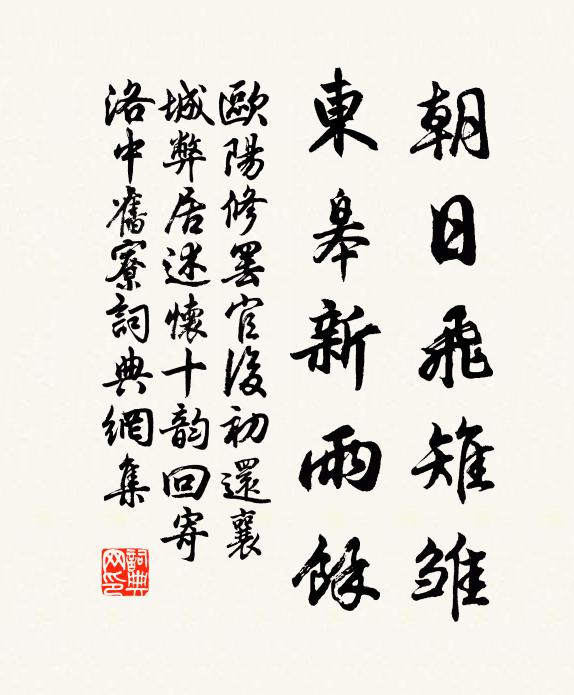 朝日飛雉雏
東皋新雨餘
歐陽修罷官後初還襄
城弊居述懷十韵回寄
洛中舊寮詞典網集
詞典网印